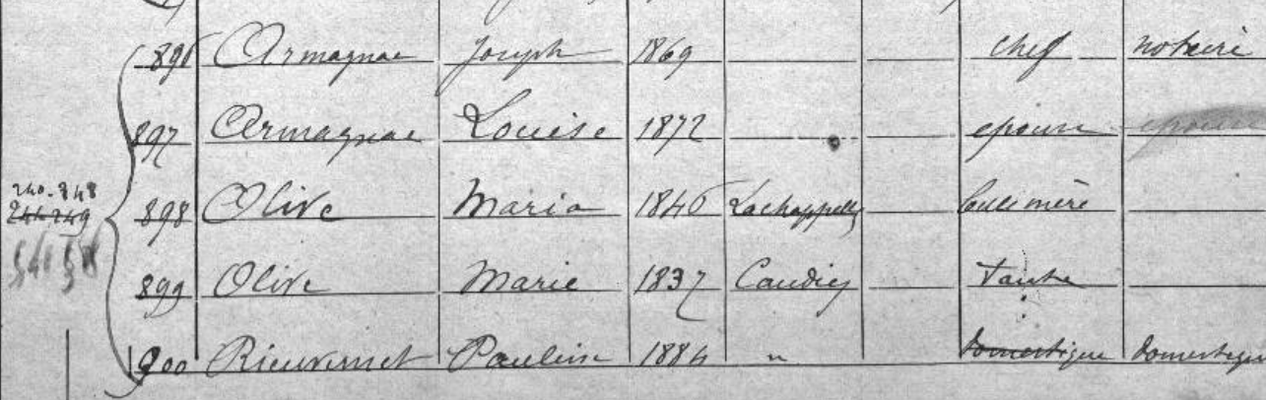 896 Armagnac Joseph 1869 chef notaire
897 Armagnac Louise 1872 epouse
240-848
898 Olive Maria 1846 Lachappelle belle mère
244-249
899 Olive Marie 1837 Caudiès tante
900 Rieuvernet Pauline 1884 " domestique domestique